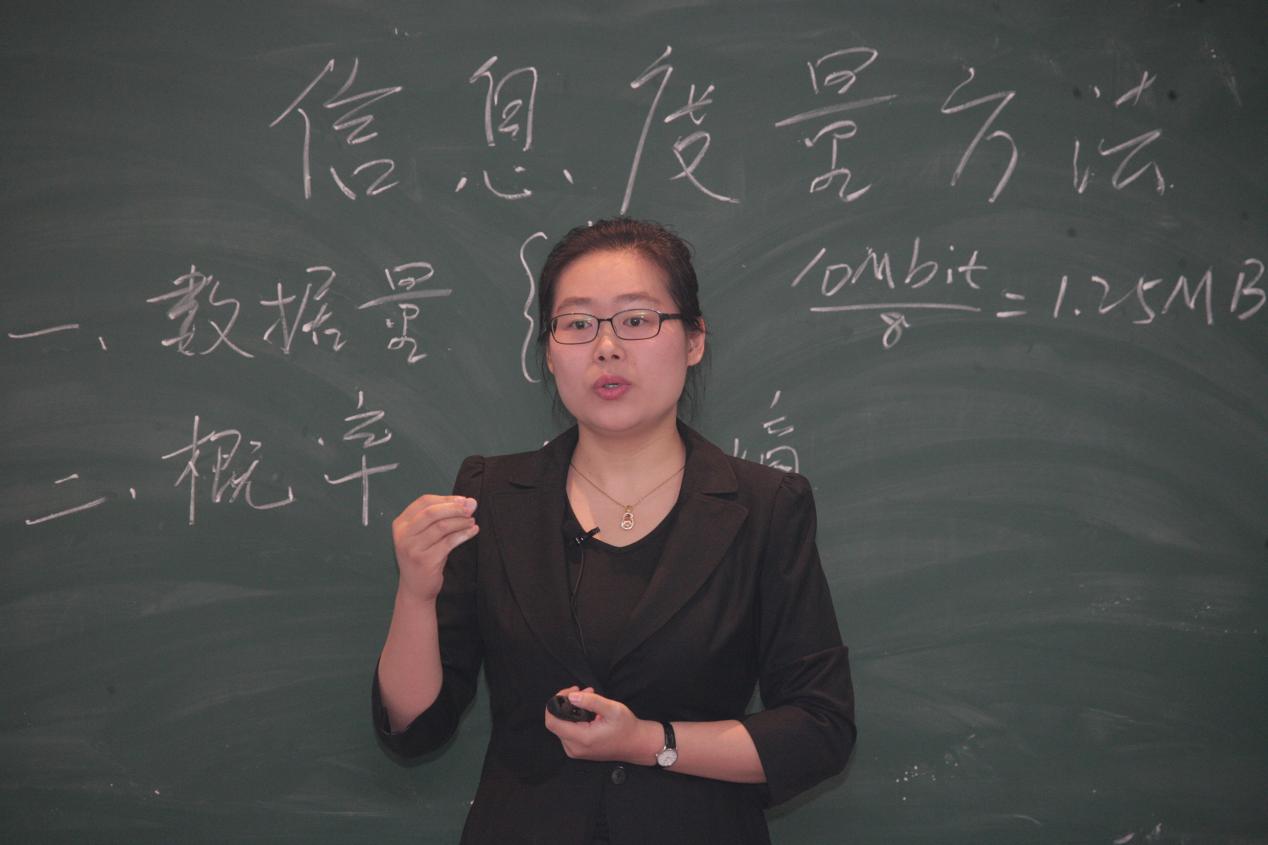 信息度量方法
一、数据量 { 10Mbit/8 = 1.25MB
二、概率 熵